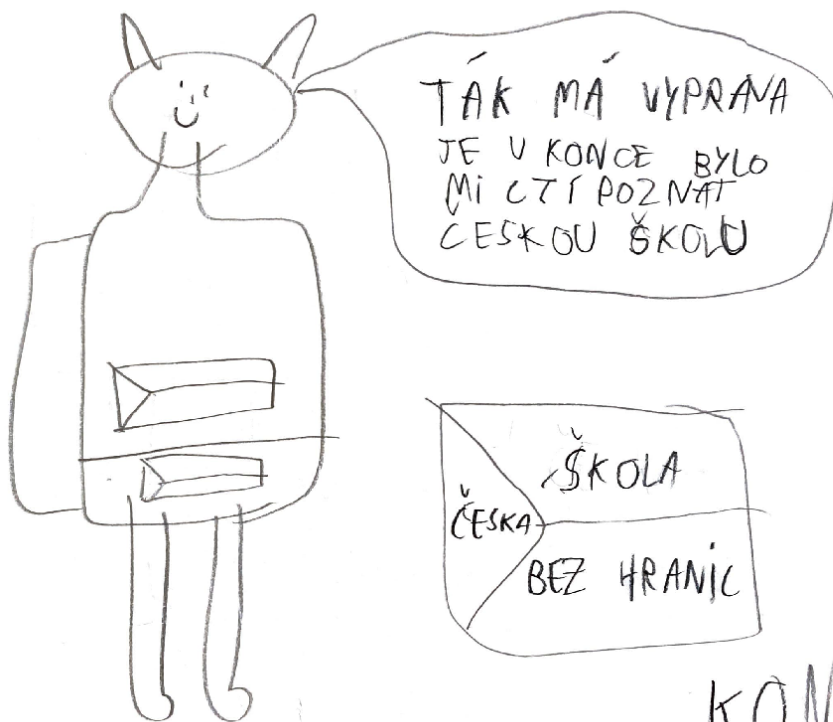 TÁK MÁ VYPRÁVA
JE U KONCE BYLO
MI CTÍ POZNAT
ČESKOU ŠKOLU
ČESKA
ŠKOLA
BEZ HRANIC
KON